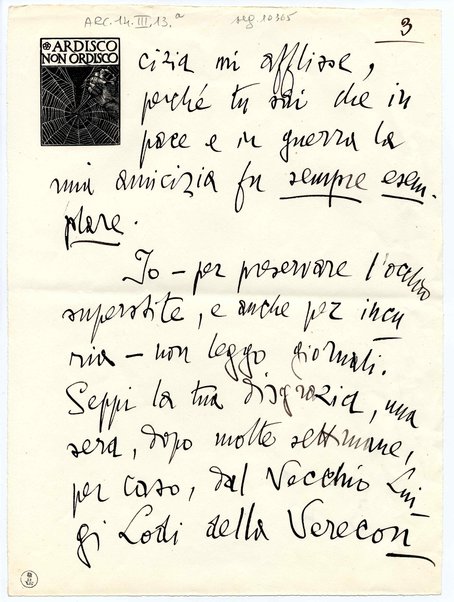 ARC. 14. III. 13.a
seg. 10305
3
ARDISCO
NON ORDISCO
cizia mi afflisse,
perché tu sai che in
pace e in guerra la
mia amicizia fu sempre esem-
plare.
Io – per preservare l'occhio
superstite, e anche per incu
ria – non leggo giornali.
Seppi la tua disgrazia, una
sera, dopo molte settimane,
per caso, dal Vecchio Lui
gi Lodi della Verecon